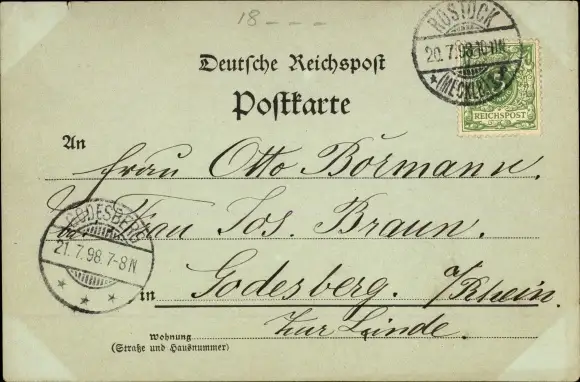 18 - - -
ROSTOCK
20.7.98.10-11N
*(MECKLB)*
REICHSPOST
Deutsche Reichspost
Postkarte
An
Frau Otto Börmann.
Frau Jos. Braun.
GODESBERG
21.7.98.7-8N
* * *
in Godesberg. a/Rhein.
Zur Linde.
Wohnung
(Straße und Hausnummer)